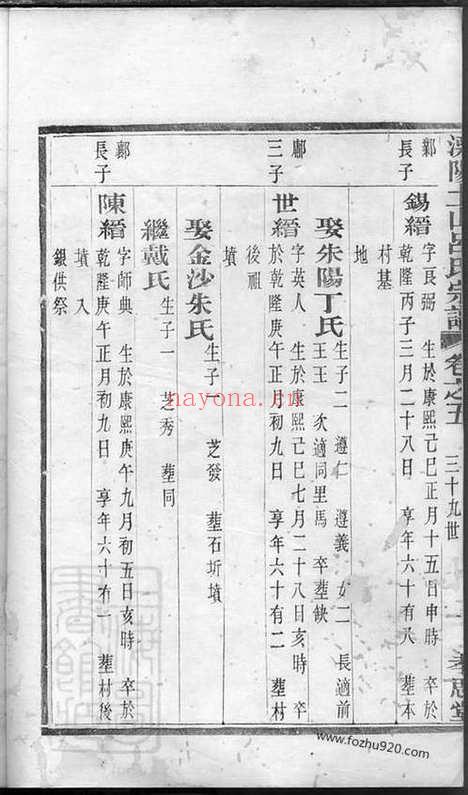 溧陽上山呂氏宗譜 卷之五 三十九世
鄴長子
錫縉 字良弼 生於康熙己巳正月十五日申時 卒於
乾隆丙子三月二十八日 享年六十有八 葬本
村基
地
娶朱陽丁氏 生子二 遵仁 遵義 女二 長適前
王王 次適同里馬 卒葬缺
三子
世縉 字英人 生於康熙己巳七月二十八日亥時 卒
於乾隆庚午正月初九日 享年六十有二 葬村
後祖
墳
娶金沙朱氏 生子一 芝發 葬石圻墳
繼戴氏 生子一 芝秀 葬同
鄴長子
陳縉 字師典 生於康熙庚午九月初五日亥時 卒於
乾隆庚午正月初九日 享年六十有一 葬村後
墳 入
銀供祭
nayona.cn
www.fozhu920.com